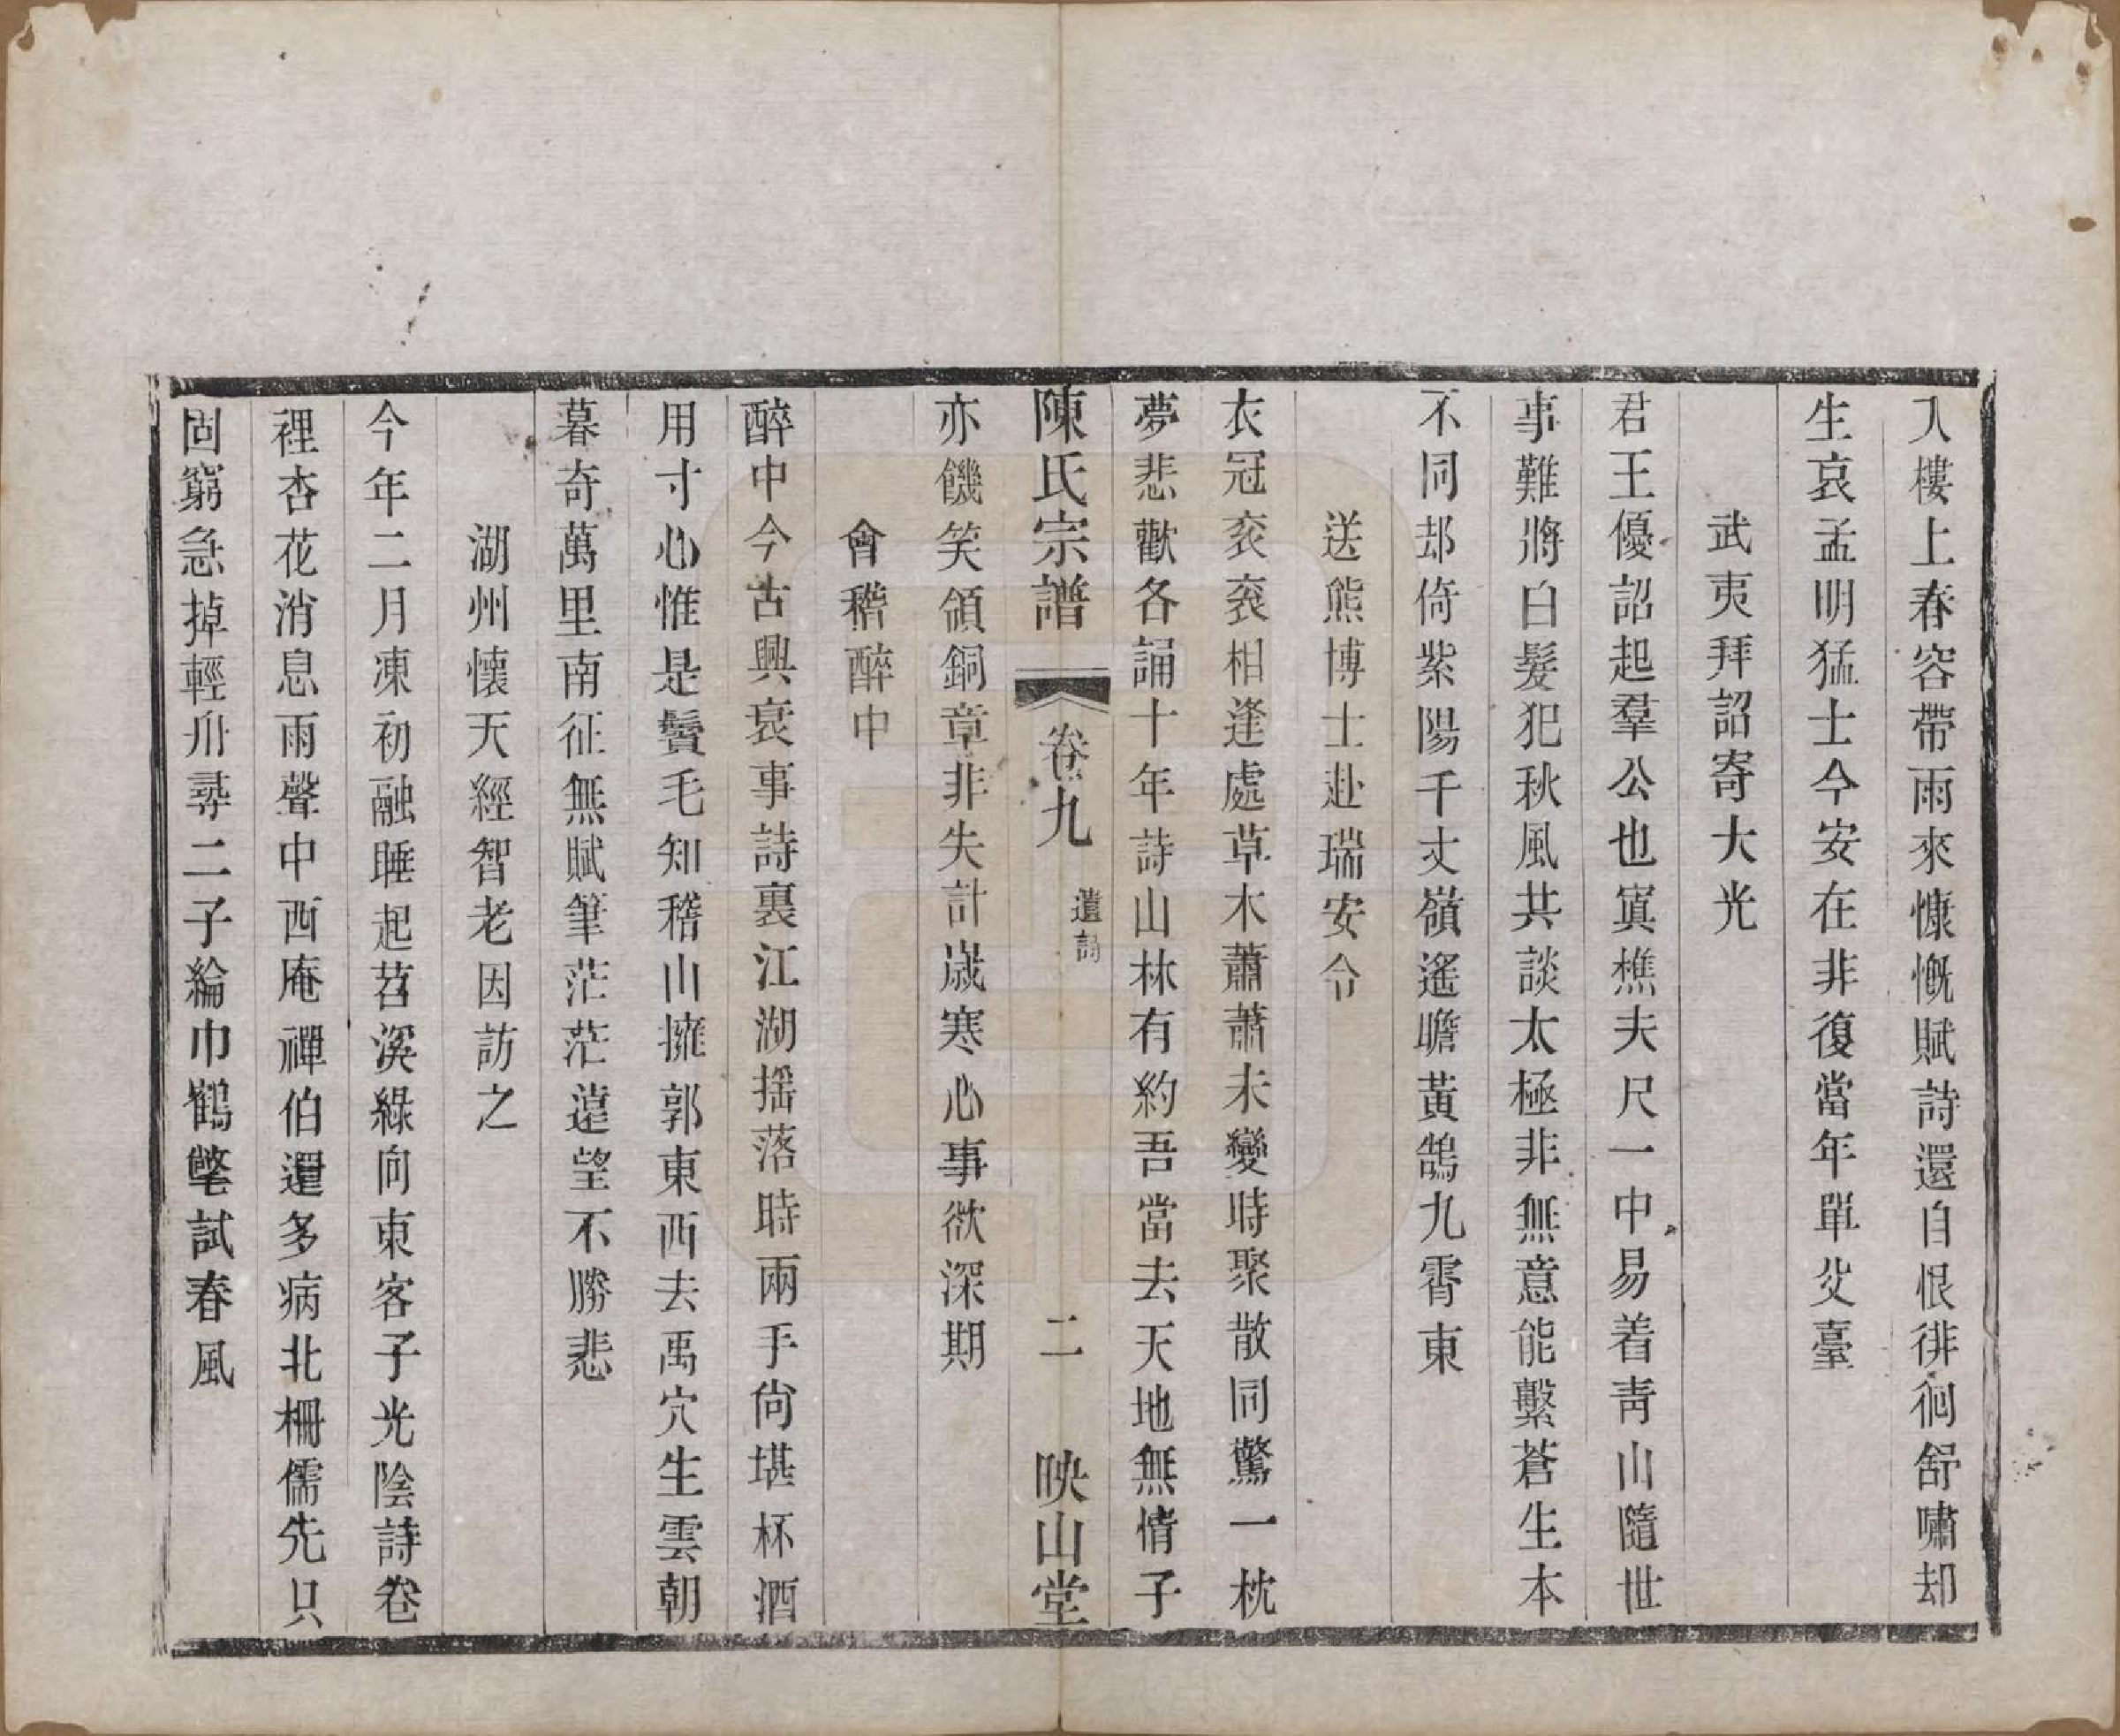 入樓上春容帶雨來慷慨賦詩還自恨徘徊舒嘯却
生哀孟明猛士今安在非復當年單父臺
武夷拜詔寄大光
君王優詔起羣公也寘樵夫尺一中易着青山隨世
事難將白髮犯秋風共談太極非無意能繫蒼生本
不同却倚紫陽千丈嶺遙瞻黃鵠九霄東
送熊博士赴瑞安令
衣冠衮衮相逢處草木蕭蕭未變時聚散同驚一枕
夢悲歡各誦十年詩山林有約吾當去天地無情子
亦饑笑領銅章非失計歲寒心事欲深期
陳氏宗譜
卷九
遺詩
二
映山堂
會稽醉中
醉中今古興衰事詩裏江湖搖落時兩手尚堪杯酒
用寸心惟是鬢毛知稽山擁郭東西去禹穴生雲朝
暮奇萬里南征無賦筆茫茫遠望不勝悲
湖州懷天經智老因訪之
今年二月凍初融睡起苕溪綠向東客子光陰詩卷
裡杏花消息雨聲中西庵禪伯還多病北柵儒先只
固窮急掉輕舟尋二子綸巾鶴氅試春風